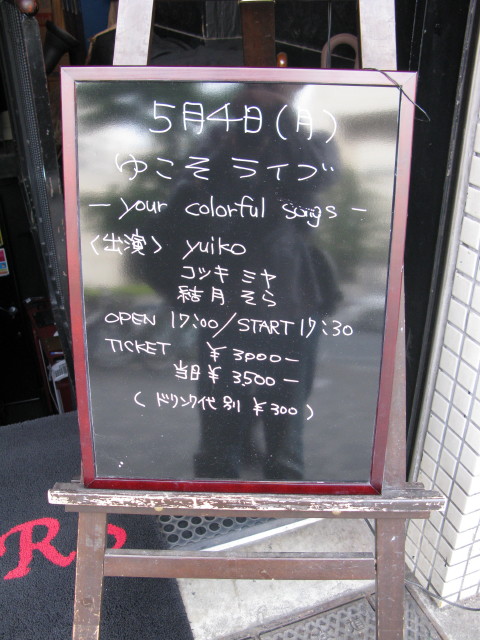 5月4日(月)
ゆこそ ライブ
- your colorful songs -
〈出演〉 yuiko
コツキ ミヤ
結月 そら
OPEN 17:00/START 17:30
TICKET ¥3000-
当日 ¥3,500-
(ドリンク代別 ¥300)
R